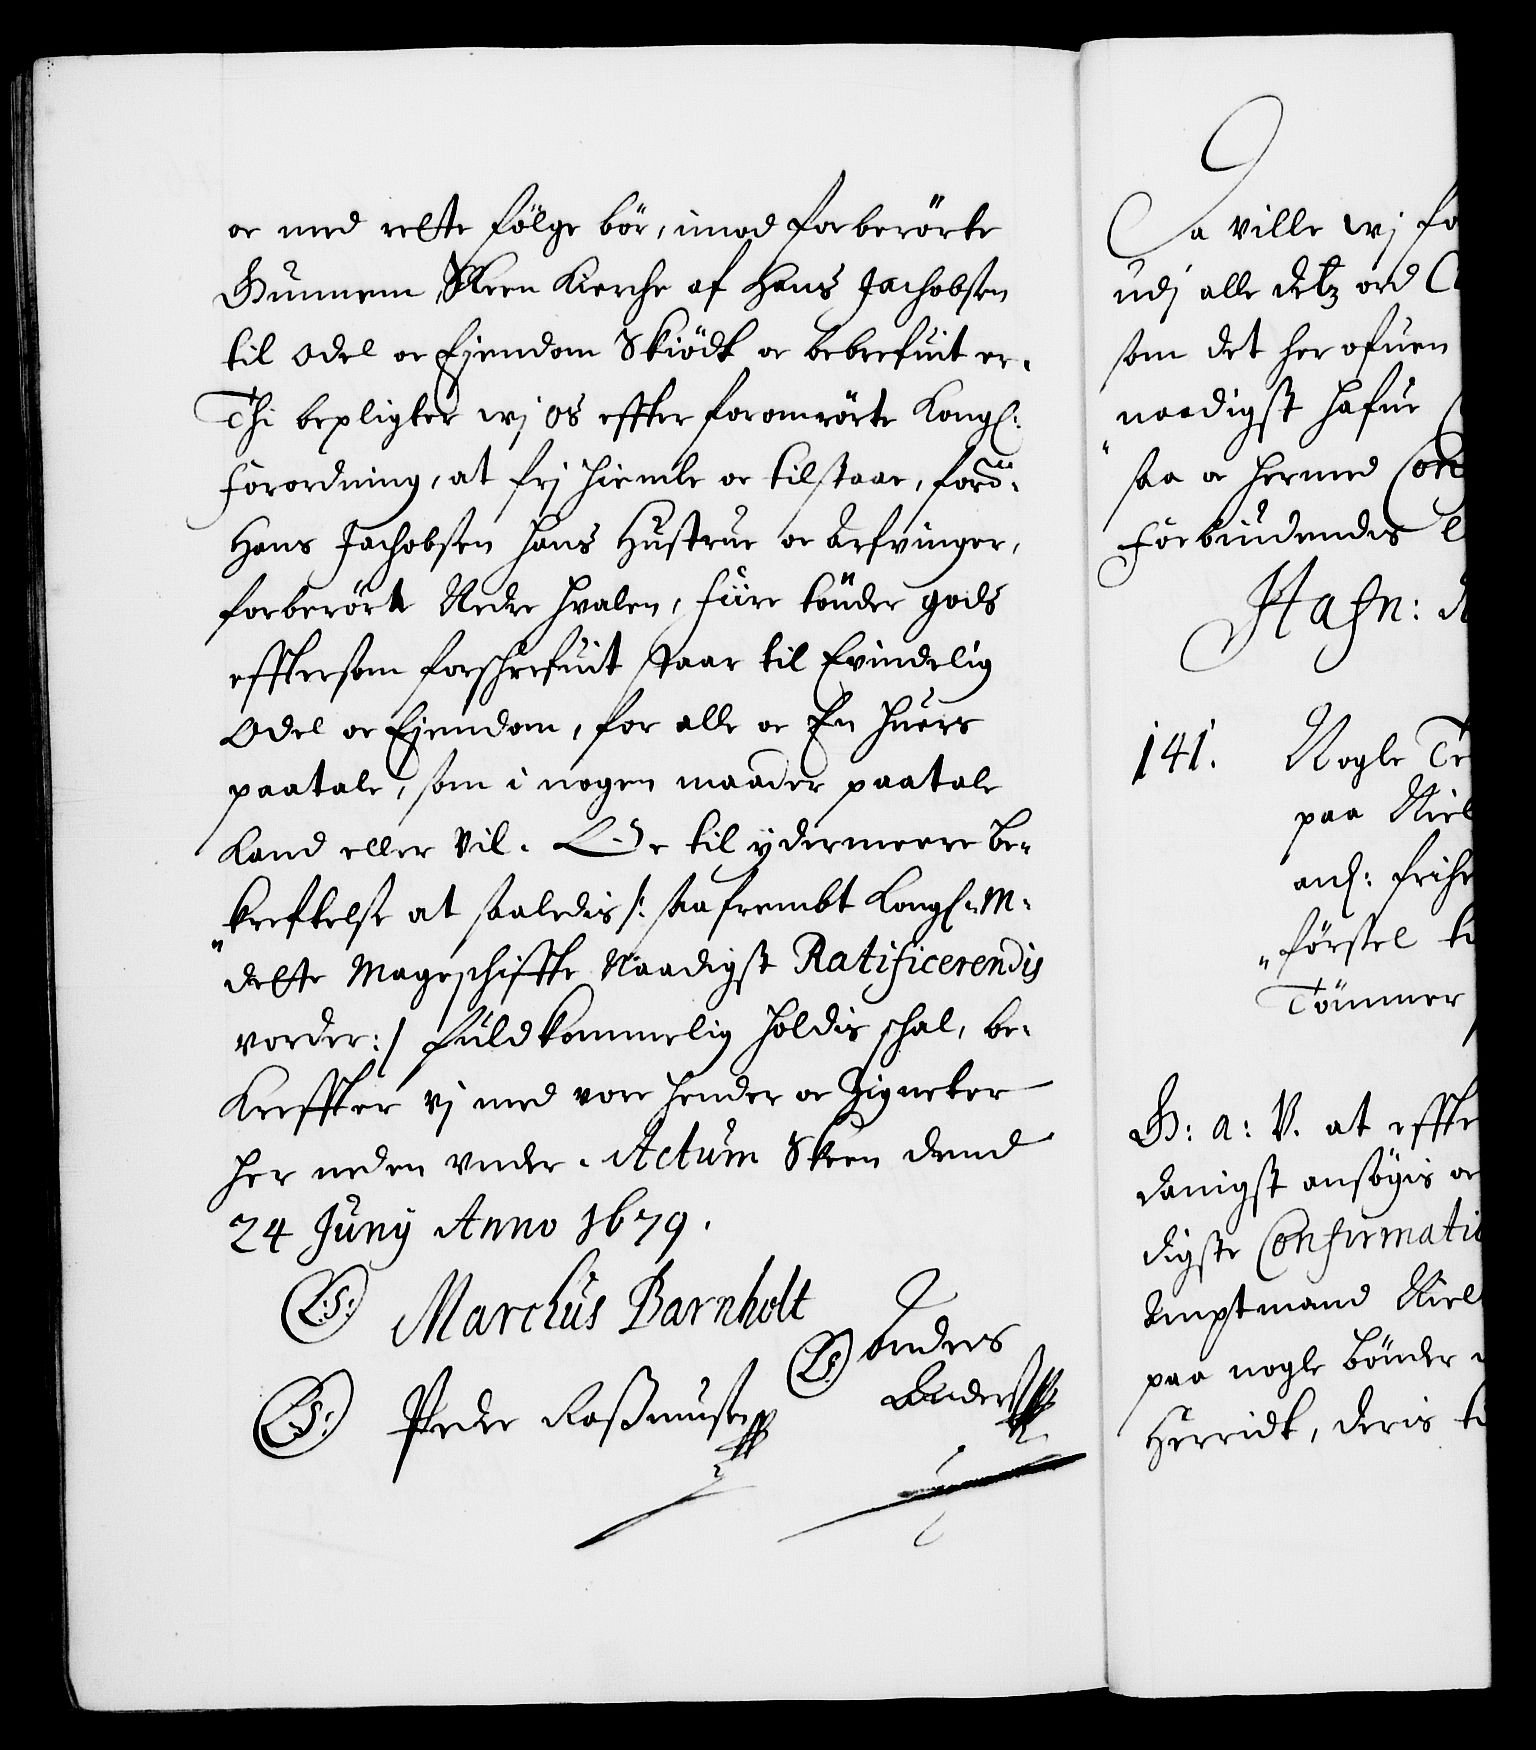 oc med rette fölge bör, imod forberörte
Gummem Skeen Kierche af Hans Jachobsen
til Odel oc Ejendom Skiödt oc bebrefuit er.
Thi bepligter wj os effter foromrörte Kongl:
Forordning, at frj hiemle oc tilstaae, ford:
Hans Jachobsen hans Hustrue oc Arfvinger,
forberört Nedre Hvalen, fiire tönder gods
efftersom forschrefuit staar til Evindelig
Odel oc Ejendom, for alle oc En huers
paatale, som i nogen maader paatale
Kand eller vil. Oc til ydermeere be-
krefftelse at saaledis /: saafremt Kongl. M.
dette Mageschiffte Naadigst Ratificerendis
vorder :/ fuldkommelig holdis schal, be-
Kreffter vj med vore hender oc Zigneter
her neden under. Actum Skeen dend
24 Juny Anno 1679.
L:S: Marchus Barnholt
LS Anders
Anders
L:S: Peder Rasmusen
Da ville wj fo
udj alle detz ord C
som det her ofuen
naadigst hafue
saa oc hermed Con
Forbiudendis
Hafn: d
141. Nogle Te
paa Niel
anl: frihe
förssel ti
Tömmer
G: a: V. at effte
danigst ansögis oc
digste Confirmatio
Amptmand Niel
paa nogle bönder
Herridt, deris ti